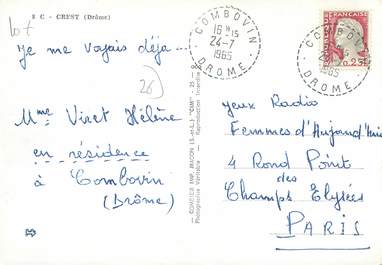 8 C - CREST (Drôme)
lot
Je me voyais déjà...
26
Mme Viret Hélène
en résidence
à Combovin
(Drôme)
COMBIER IMP. MACON (S.-et-L.) "CIM"
Photographie Véritable - Reproduction Interdite
COMBOVIN
16 H 15
24-7
1965
DROME
FRANÇAISE
0,25
1965
DROME
yeux Radio
Femmes d'Aujourd'hui
4 Rond Point
des
Champs Elysées
PARIS